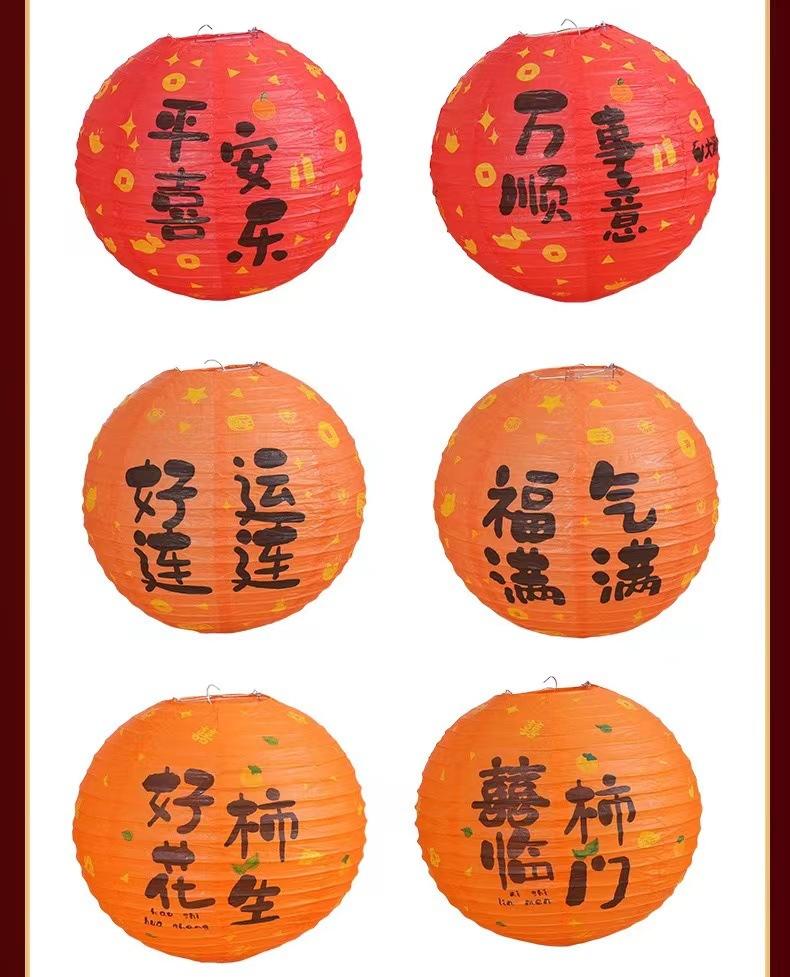 平安
喜乐
万事
顺意
好运
连连
福气
满满
好柿
花生
hao shi
hua sheng
囍柿
临门
xi shi
lin men